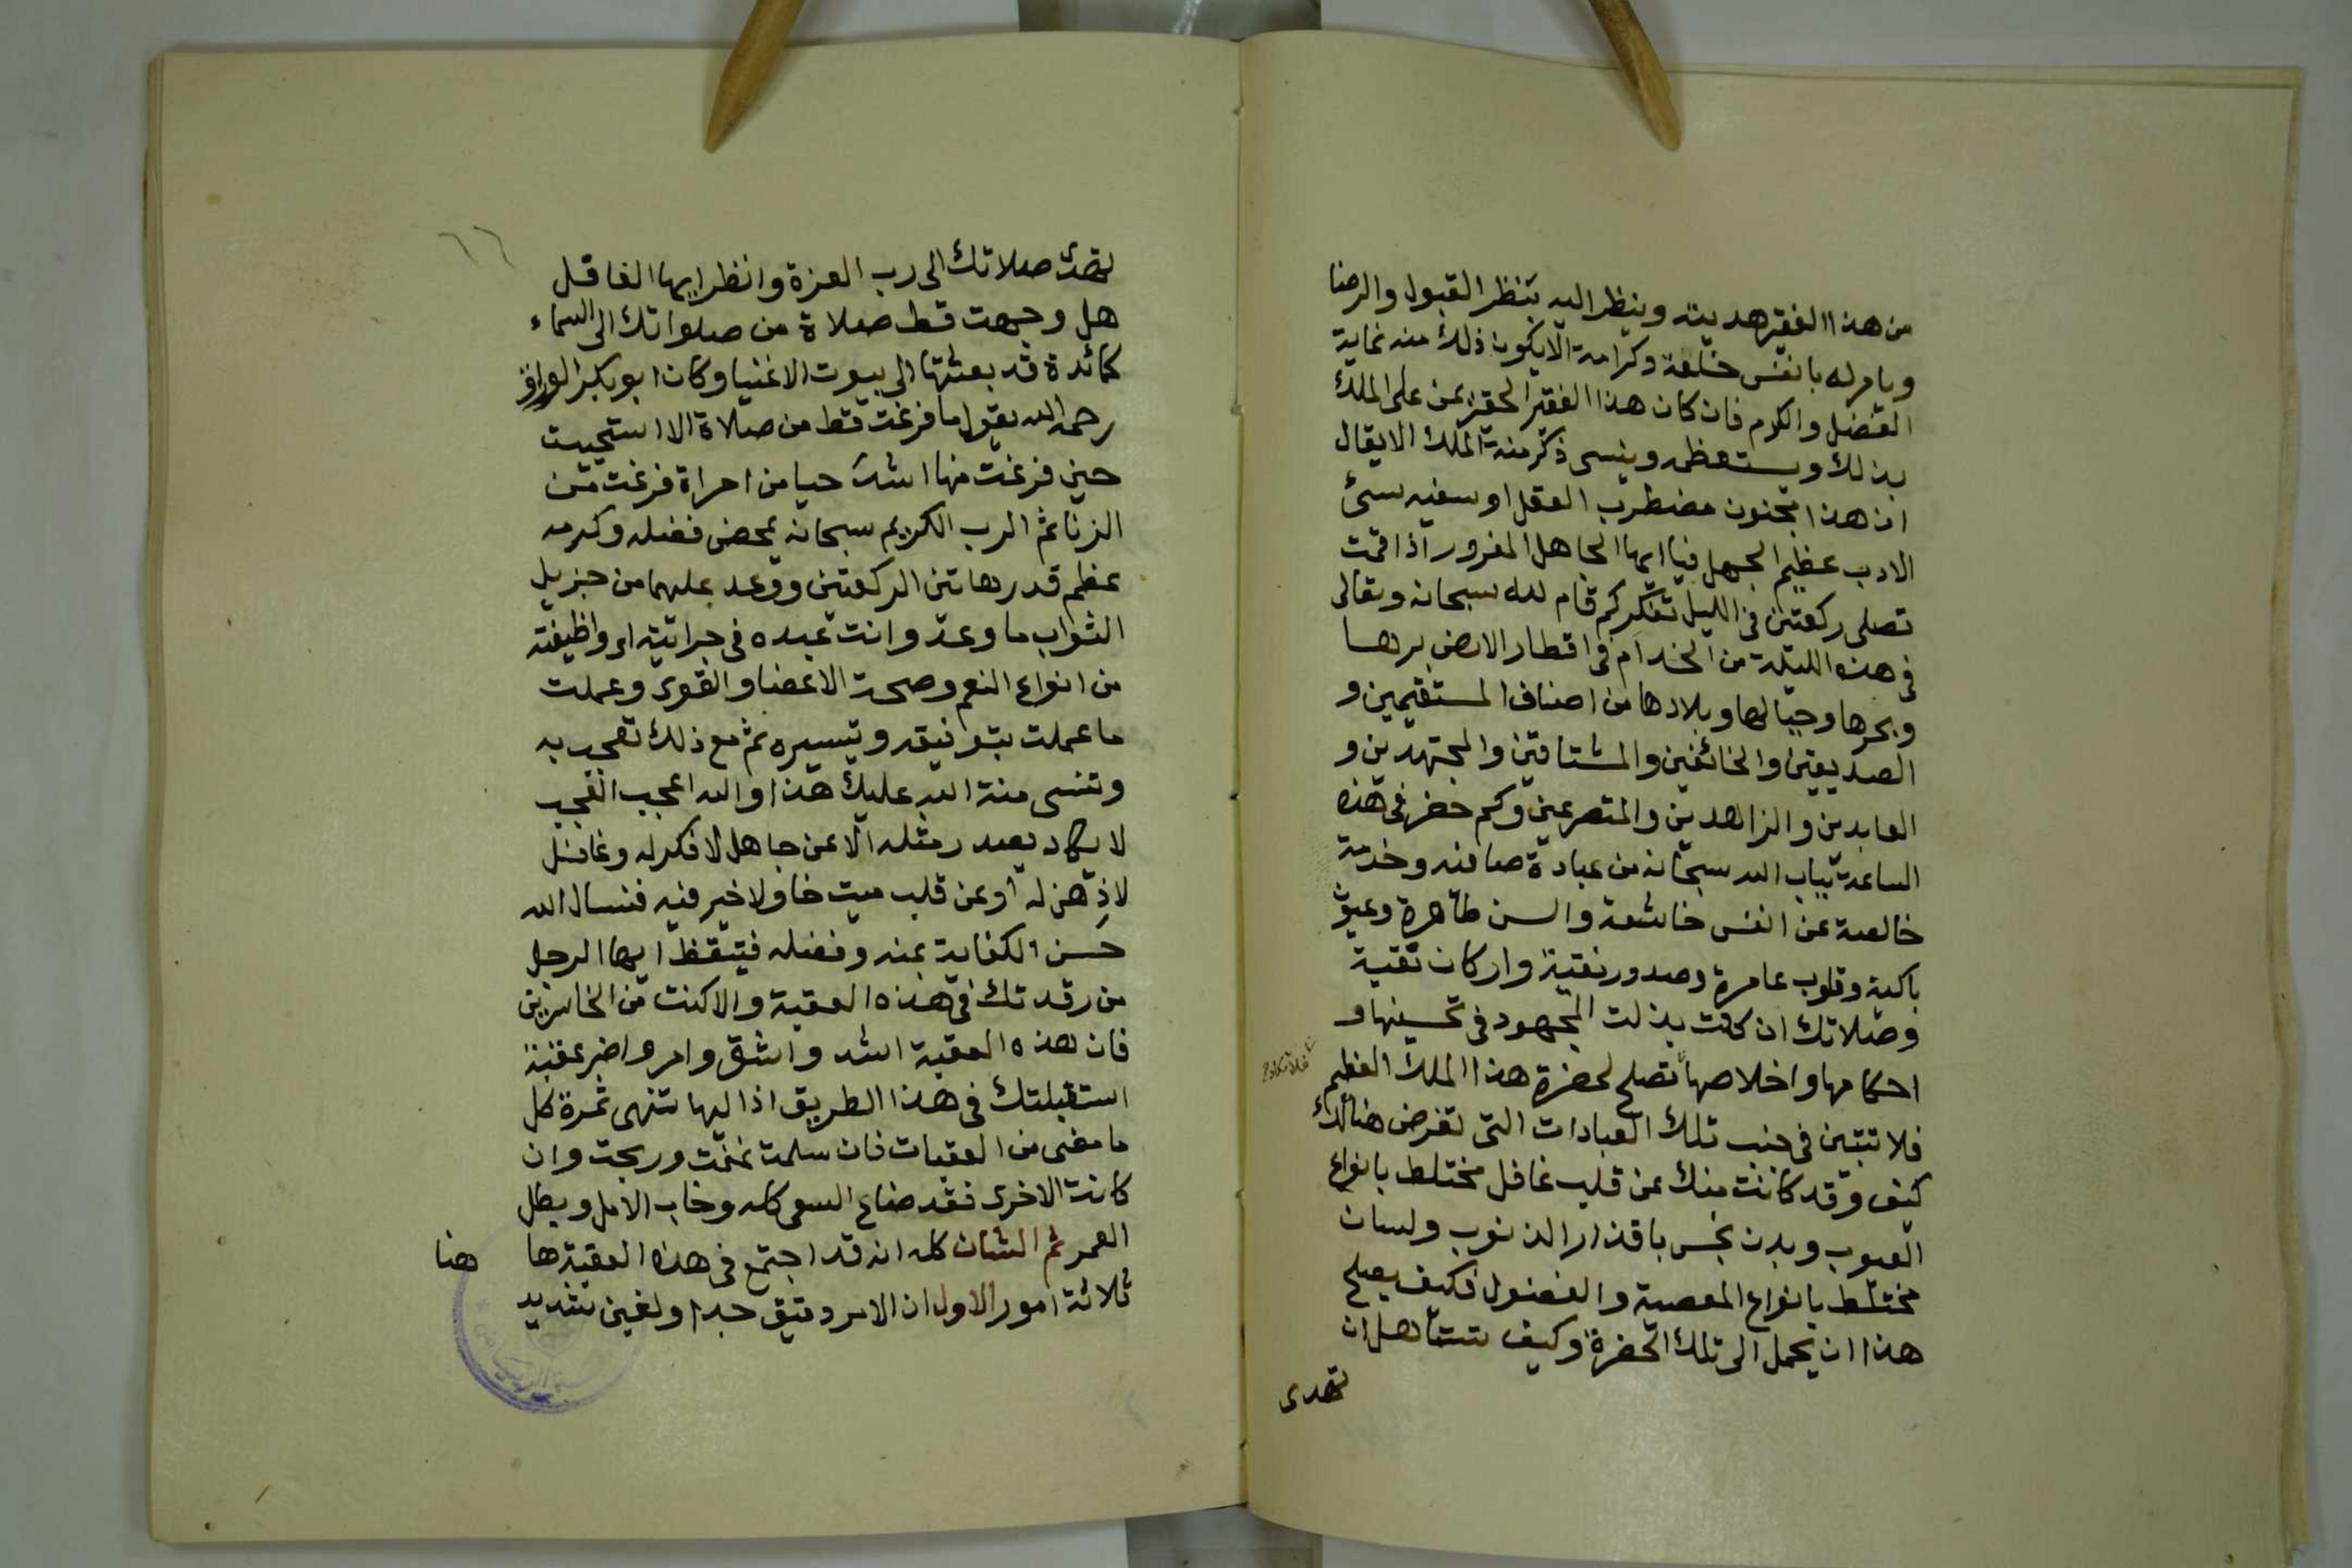 من هذا الفقير هديته وينظر اليه بنظر القبول والرضا
ويامر له بانفس خلعة وكرامة الا يكون ذلك منه غاية
الفضل والكرم فان كان هذا الفقير الحقير يمن على الملك
بذلك ويستعظمه وينسى ذكر منة الملك الا يقال
ان هذا مجنون مضطرب العقل او سفيه سئ
الادب عظيم الجهل فيا ايها الجاهل المغرور اذا قمت
تصلى ركعتين فى الليل تفكر كم قام لله سبحانه وتعالى
فى هذه الليلة من الخدام فى اقطار الارض برها
وبحرها وجبالها وبلادها من اصناف المستقيمين و
الصديقين والخائفين والمشتاقين والمجتهدين و
العابدين والزاهدين والمتضرعين وكم حضر فى هذه
الساعة بباب الله سبحانه من عبادة صافيه وخدمة
خالصة عن انفس خاشعة والسن طاهرة وعيون
باكية وقلوب عامرة وصدور نقية واركان تقية
وصلاتك ان كانت بذلت المجهود فى تحسينها و
احكامها واخلاصها تصلح لحضرة هذا الملك العظيم
فلا تتبين فى جنب تلك العبادات التى تعرض هنالك
كيف وقد كانت منك عن قلب غافل مختلط بانواع
العيوب وبدن نجس باقذار الذنوب ولسان
مختلط بانواع المعصية والفضول فكيف يصلح
هذا ان يحمل الى تلك الحضرة وكيف تستاهل ان
تهدى
٦٦
تهدى صلاتك الى رب العزة وانظر ايها الغافل
هل وجهت قط صلاة من صلواتك الى السماء
كمائدة قد بعثتها الى بيوت الاغنيا وكان ابو بكر الوراق
رحمه الله يقول ما فرغت قط من صلاة الا استحييت
حين فرغت منها اشد حيا من امراة فرغت من
الزنا ثم الرب الكريم سبحانه بمحض فضله وكرمه
عظم قدر هاتين الركعتين ووعد عليهما من جزيل
الثواب ما وعد وانت عبده فى جرايته او واظيفته
من انواع النعم وصحة الاعضا والقوى وعملت
ما عملت بتوفيقه وتيسيره ثم مع ذلك تعجب به
وتنسى منة الله عليك هذا والله اعجب العجب
لا يكاد يصدر مثله الا عن جاهل لا فكر له وغافل
لا ذهن له او عن قلب ميت خاو لا خير فيه فنسال الله
حسن الكفاية بمنه وفضله فتيقظ ايها الرجل
من رقدتك فى هذه العقبة والا كنت من الخاسرين
فان هذه العقبة اشد واشق وامر واضر عقبة
استقبلتك فى هذا الطريق اذ اليها تنتهى ثمرة كل
ما مضى من العقبات فان سلمت غنمت وربحت وان
كانت الاخرى فقد ضاع السعى كله وخاب الامل وبطل
العمر ثم الشان كله انه قد اجتمع فى هذه العقبة ها هنا
ثلاثة امور الاول ان الامر دقيق جدا والغبن شديد